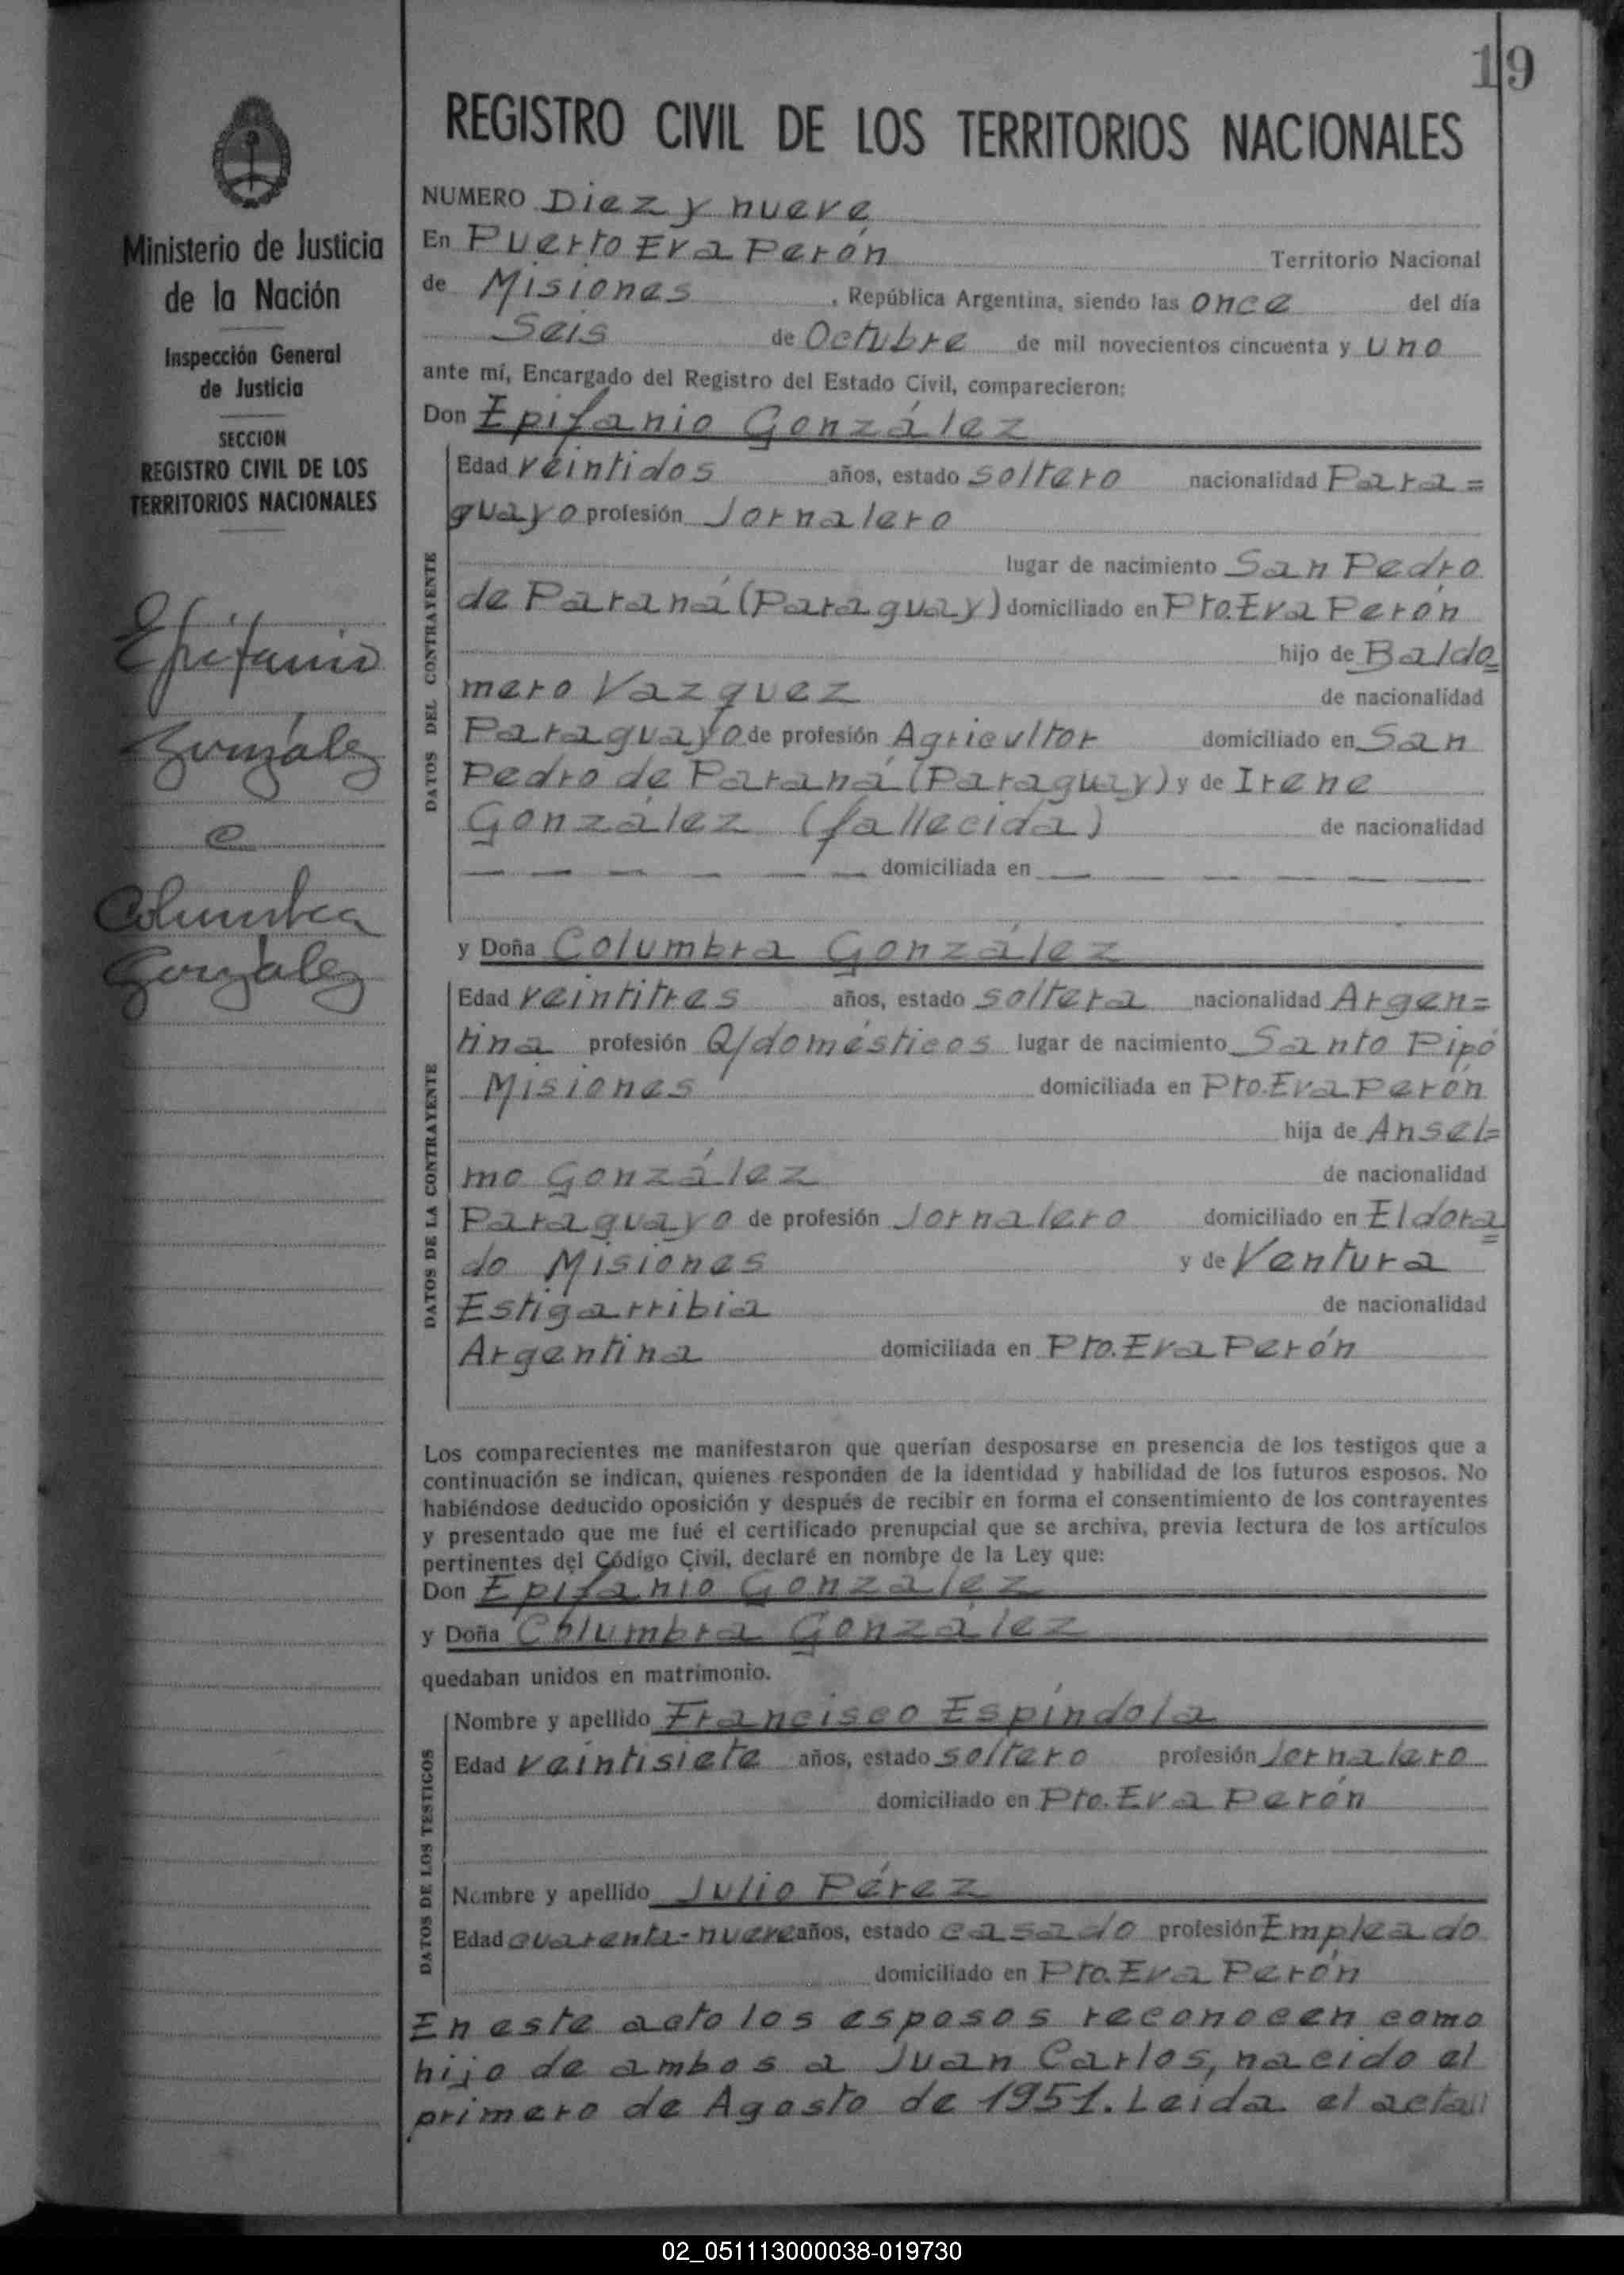 19
REGISTRO CIVIL DE LOS TERRITORIOS NACIONALES
Ministerio de Justicia
de la Nación
Inspección General
de Justicia
SECCION
REGISTRO CIVIL DE LOS
TERRITORIOS NACIONALES
Epifanio
González
e
Columbra
González
NUMERO Diez y nueve
En Puerto Eva Perón Territorio Nacional
de Misiones, República Argentina, siendo las once del día
Seis de Octubre de mil novecientos cincuenta y uno
ante mí, Encargado del Registro del Estado Civil, comparecieron:
Don Epifanio González
DATOS DEL CONTRAYENTE
Edad veintidos años, estado soltero nacionalidad Para=
guayo profesión Jornalero
lugar de nacimiento San Pedro
de Paraná (Paraguay) domiciliado en Pto. Eva Perón
hijo de Baldo=
mero Vazquez de nacionalidad
Paraguayo de profesión Agricultor domiciliado en San
Pedro de Paraná (Paraguay) y de Irene
González (fallecida) de nacionalidad
— — — — — — domiciliada en — — — — —
y Doña Columbra González
DATOS DE LA CONTRAYENTE
Edad veintitres años, estado soltera nacionalidad Argen=
tina profesión Q/domésticos lugar de nacimiento Santo Pipó
Misiones domiciliada en Pto. Eva Perón
hija de Ansel=
mo González de nacionalidad
Paraguayo de profesión Jornalero domiciliado en Eldora=
do Misiones y de Ventura
Estigarribia de nacionalidad
Argentina domiciliada en Pto. Eva Perón
Los comparecientes me manifestaron que querían desposarse en presencia de los testigos que a
continuación se indican, quienes responden de la identidad y habilidad de los futuros esposos. No
habiéndose deducido oposición y después de recibir en forma el consentimiento de los contrayentes
y presentado que me fué el certificado prenupcial que se archiva, previa lectura de los artículos
pertinentes del Código Civil, declaré en nombre de la Ley que:
Don Epifanio González
y Doña Columbra González
quedaban unidos en matrimonio.
DATOS DE LOS TESTIGOS
Nombre y apellido Francisco Espíndola
Edad veintisiete años, estado soltero profesión Jornalero
domiciliado en Pto. Eva Perón
Nombre y apellido Julio Pérez
Edad cuarenta-nueve años, estado casado profesión Empleado
domiciliado en Pto. Eva Perón
En este acto los esposos reconocen como
hijo de ambos a Juan Carlos, nacido el
primero de Agosto de 1951. Leida el acta
02_051113000038-019730